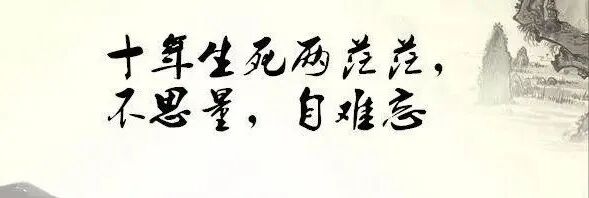 十年生死两茫茫，
不思量，自难忘